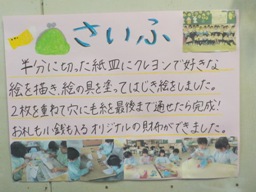 さいふ
半分に切った紙皿にクレヨンで好きな
絵を描き、絵の具を塗ってはじき絵をしました。
2枚を重ねて穴に毛糸を最後まで通せたら完成!
お札も小銭も入るオリジナルの財布ができました。